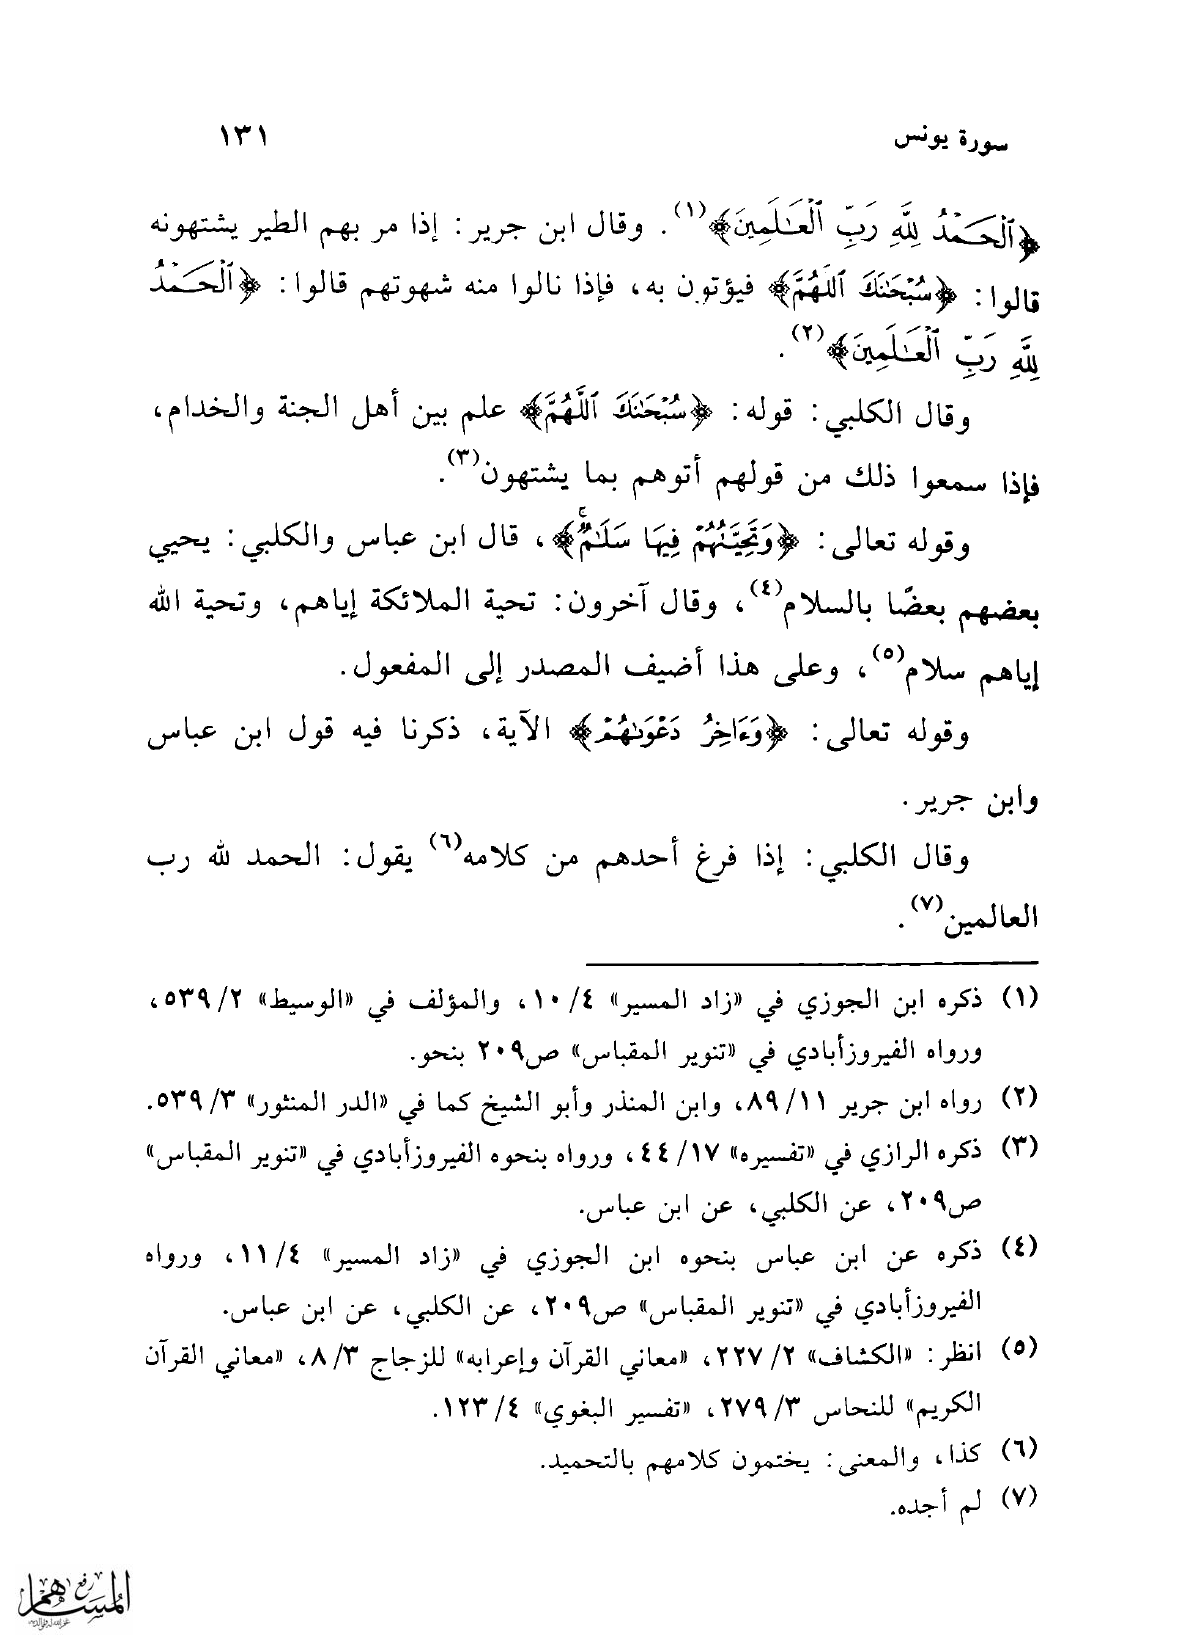 سورة يونس ١٣١
﴿ٱلْحَمْدُ لِلَّهِ رَبِّ ٱلْعَـٰلَمِينَ﴾(١). وقال ابن جرير: إذا مر بهم الطير يشتهونه
قالوا: ﴿سُبْحَـٰنَكَ ٱللَّهُمَّ﴾ فيؤتون به، فإذا نالوا منه شهوتهم قالوا: ﴿ٱلْحَمْدُ
لِلَّهِ رَبِّ ٱلْعَـٰلَمِينَ﴾(٢).
وقال الكلبي: قوله: ﴿سُبْحَـٰنَكَ ٱللَّهُمَّ﴾ علم بين أهل الجنة والخدام،
فإذا سمعوا ذلك من قولهم أتوهم بما يشتهون(٣).
وقوله تعالى: ﴿وَتَحِيَّتُهُمْ فِيهَا سَلَـٰمٌۚ﴾، قال ابن عباس والكلبي: يحيي
بعضهم بعضًا بالسلام(٤)، وقال آخرون: تحية الملائكة إياهم، وتحية الله
إياهم سلام(٥)، وعلى هذا أضيف المصدر إلى المفعول.
وقوله تعالى: ﴿وَءَاخِرُ دَعْوَىٰهُمْ﴾ الآية، ذكرنا فيه قول ابن عباس
وابن جرير.
وقال الكلبي: إذا فرغ أحدهم من كلامه(٦) يقول: الحمد لله رب
العالمين(٧).
(١) ذكره ابن الجوزي في «زاد المسير» ٤/ ١٠، والمؤلف في «الوسيط» ٢/ ٥٣٩،
ورواه الفيروزأبادي في «تنوير المقباس» ص٢٠٩ بنحو.
(٢) رواه ابن جرير ١١/ ٨٩، وابن المنذر وأبو الشيخ كما في «الدر المنثور» ٣/ ٥٣٩.
(٣) ذكره الرازي في «تفسيره» ١٧/ ٤٤، ورواه بنحوه الفيروزأبادي في «تنوير المقباس»
ص٢٠٩، عن الكلبي، عن ابن عباس.
(٤) ذكره عن ابن عباس بنحوه ابن الجوزي في «زاد المسير» ٤/ ١١، ورواه
الفيروزأبادي في «تنوير المقباس» ص٢٠٩، عن الكلبي، عن ابن عباس.
(٥) انظر: «الكشاف» ٢/ ٢٢٧، «معاني القرآن وإعرابه» للزجاج ٣/ ٨، «معاني القرآن
الكريم» للنحاس ٣/ ٢٧٩، «تفسير البغوي» ٤/ ١٢٣.
(٦) كذا، والمعنى: يختمون كلامهم بالتحميد.
(٧) لم أجده.
رفع
المساهم